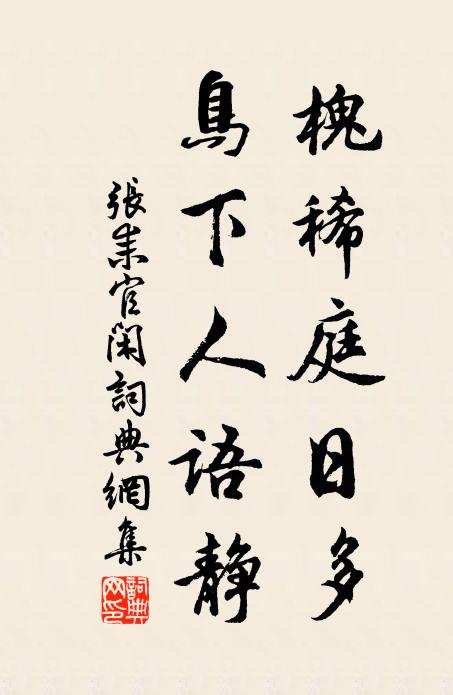 槐稀庭日多
鳥下人語靜
張耒官閑詞典網集
詞典網印